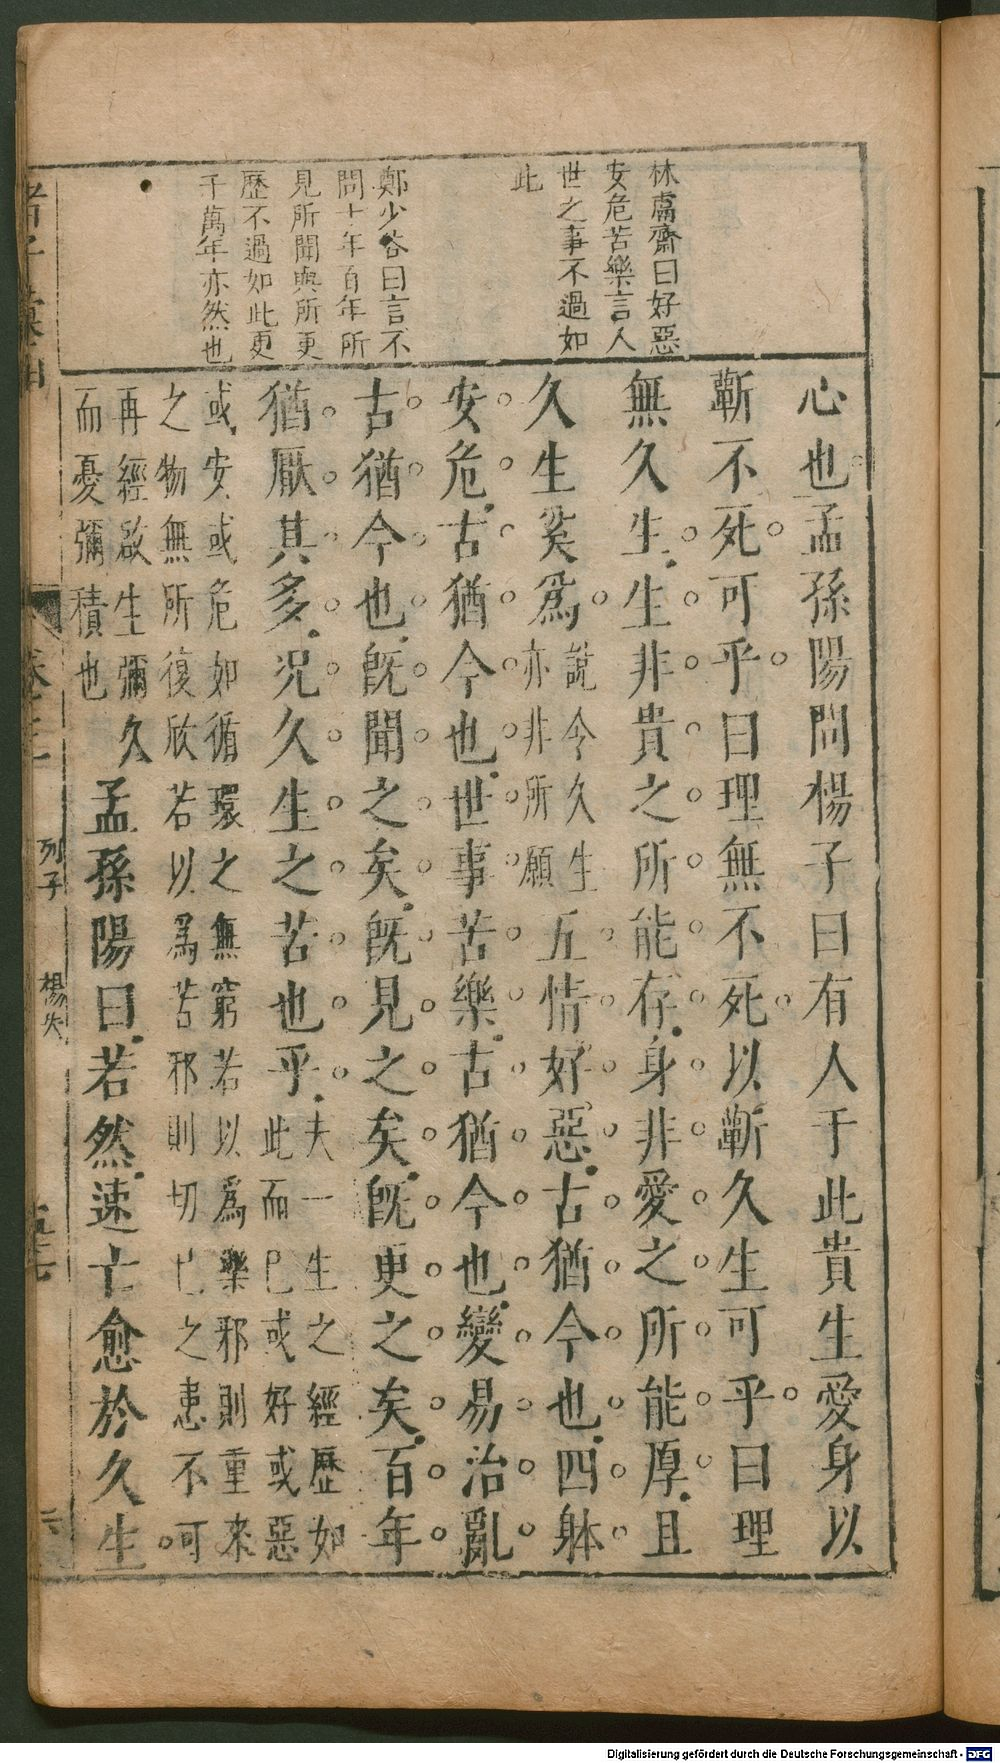 林鬳齋曰好惡
安危苦樂言人
世之事不過如
此
鄭少谷曰言不
問十年百年所
見所聞與所更
歷不過如此更
千萬年亦然也
心也孟孫陽問楊子曰有人于此貴生愛身以
蘄不死可乎曰理無不死以蘄久生可乎曰理
無久生生非貴之所能存身非愛之所能厚且
久生奚爲說令久生亦非所願五情好惡古猶今也四躰
安危古猶今也世事苦樂古猶今也變易治亂
古猶今也旣聞之矣旣見之矣旣更之矣百年
猶厭其多况久生之苦也乎夫一生之經歷如此而已或好或惡
或安或危如循環之無窮若以爲樂邪則重來
之物無所復欣若以爲苦邪則切已之患不可
再經故生彌久而憂彌積也孟孫陽曰若然速亡愈於久生
列子
楊朱
六
Digitalisierung gefördert durch die Deutsche Forschungsgemeinschaft - DFG